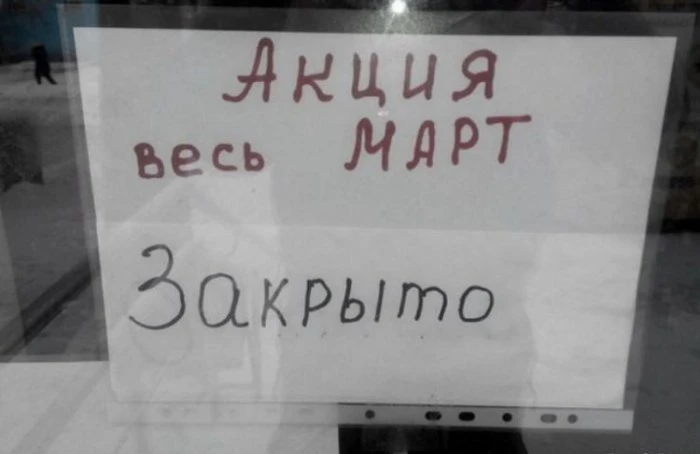 Акция
весь МАРТ
Закрыто